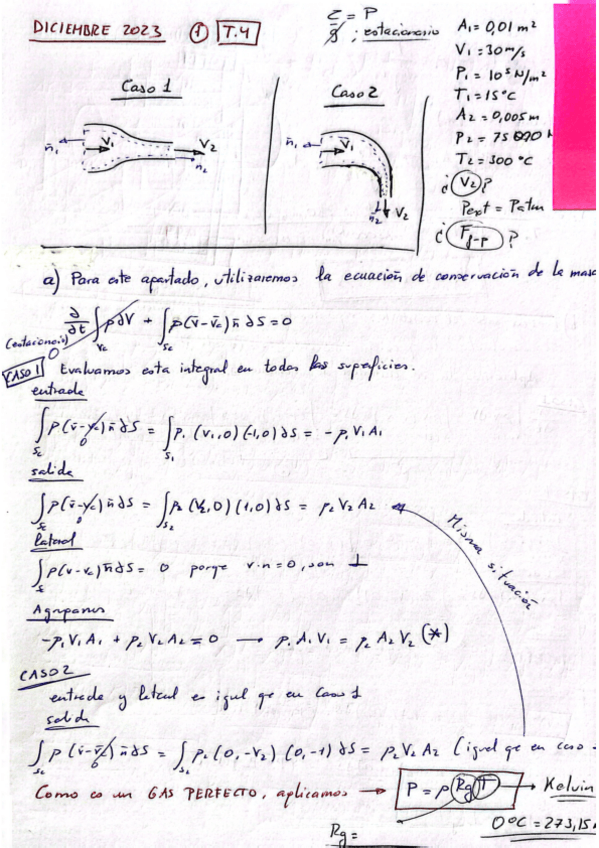 DICIEMBRE 2023 ① T.4
τ = P
g ; estacionario
A₁ = 0,01 m²
V₁ = 30 m/s
P₁ = 10⁵ N/m²
T₁ = 15°C
A₂ = 0,005 m
P₂ = 75 000 N
T₂ = 300 °C
¿ V₂ ?
Pext = Patm
¿ F f-p ?
Caso 1
n̄₁ V₁ V₂ n̄₂
Caso 2
n̄₁ V₁ n̄₂ V₂
a) Para este apartado, utilizaremos la ecuación de conservación de la masa
∂/∂t ∫Vc ρ dV + ∫Sc ρ(v̄-v̄c) n̄ dS = 0
(estacionario) 0
CASO 1 Evaluamos esta integral en todas las superficies.
entrada
∫Sc ρ(v̄-v̄c) n̄ dS = ∫S₁ ρ₁ (V₁,0)(-1,0) dS = -ρ₁V₁A₁
0
salida
∫Sc ρ(v̄-v̄c) n̄ dS = ∫S₂ ρ₂ (V₂,0)(1,0) dS = ρ₂V₂A₂
0
Misma situación
lateral
∫Sc ρ(v-vc) n̄ dS = 0 porqe v·n = 0, son ⊥
Agrupamos
-ρ₁V₁A₁ + ρ₂V₂A₂ = 0 → ρ₁A₁V₁ = ρ₂A₂V₂ (*)
CASO 2
entrada y lateral es igual qe en Caso 1
salida
∫Sc ρ(v̄-v̄c) n̄ dS = ∫S₂ ρ₂(0,-V₂)(0,-1) dS = ρ₂V₂A₂ (igual qe en caso
0
Como es un GAS PERFECTO, aplicamos → P = ρ Rg T → Kelvin
0°C = 273,15
Rg =